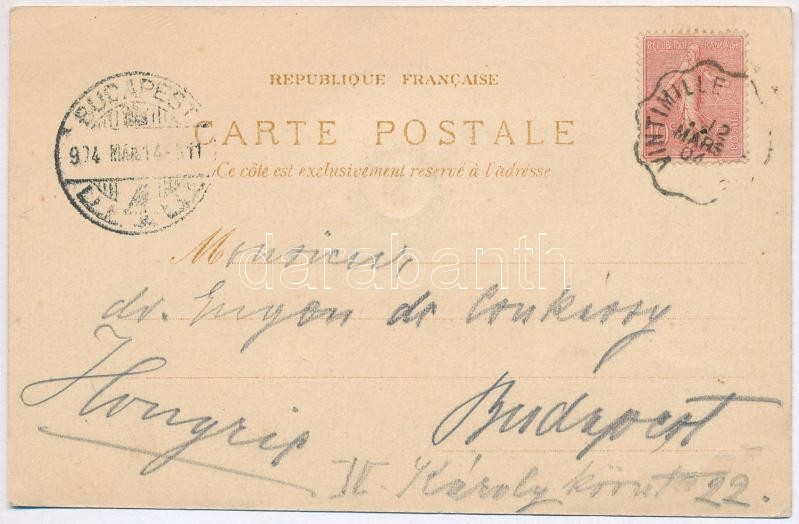 REPUBLIQUE FRANÇAISE
REPUBLIQUE FRANÇAISE
VINTIMILLE
12
MARS
04
BUDAPEST
904 MAR 14
4
CARTE POSTALE
Ce côté est exclusivement reservé à l'adresse
darabanth
Monsieur
dr. Eugen de Csukássy
Hongrie
Budapest
IV. Károly körut 22.